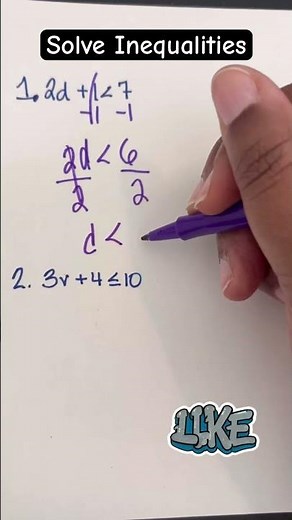 Solve Inequalities
1. 2d + 1 < 7
-1 -1
2d < 6
2 2
d <
2. 3v + 4 ≤ 10
LIKE